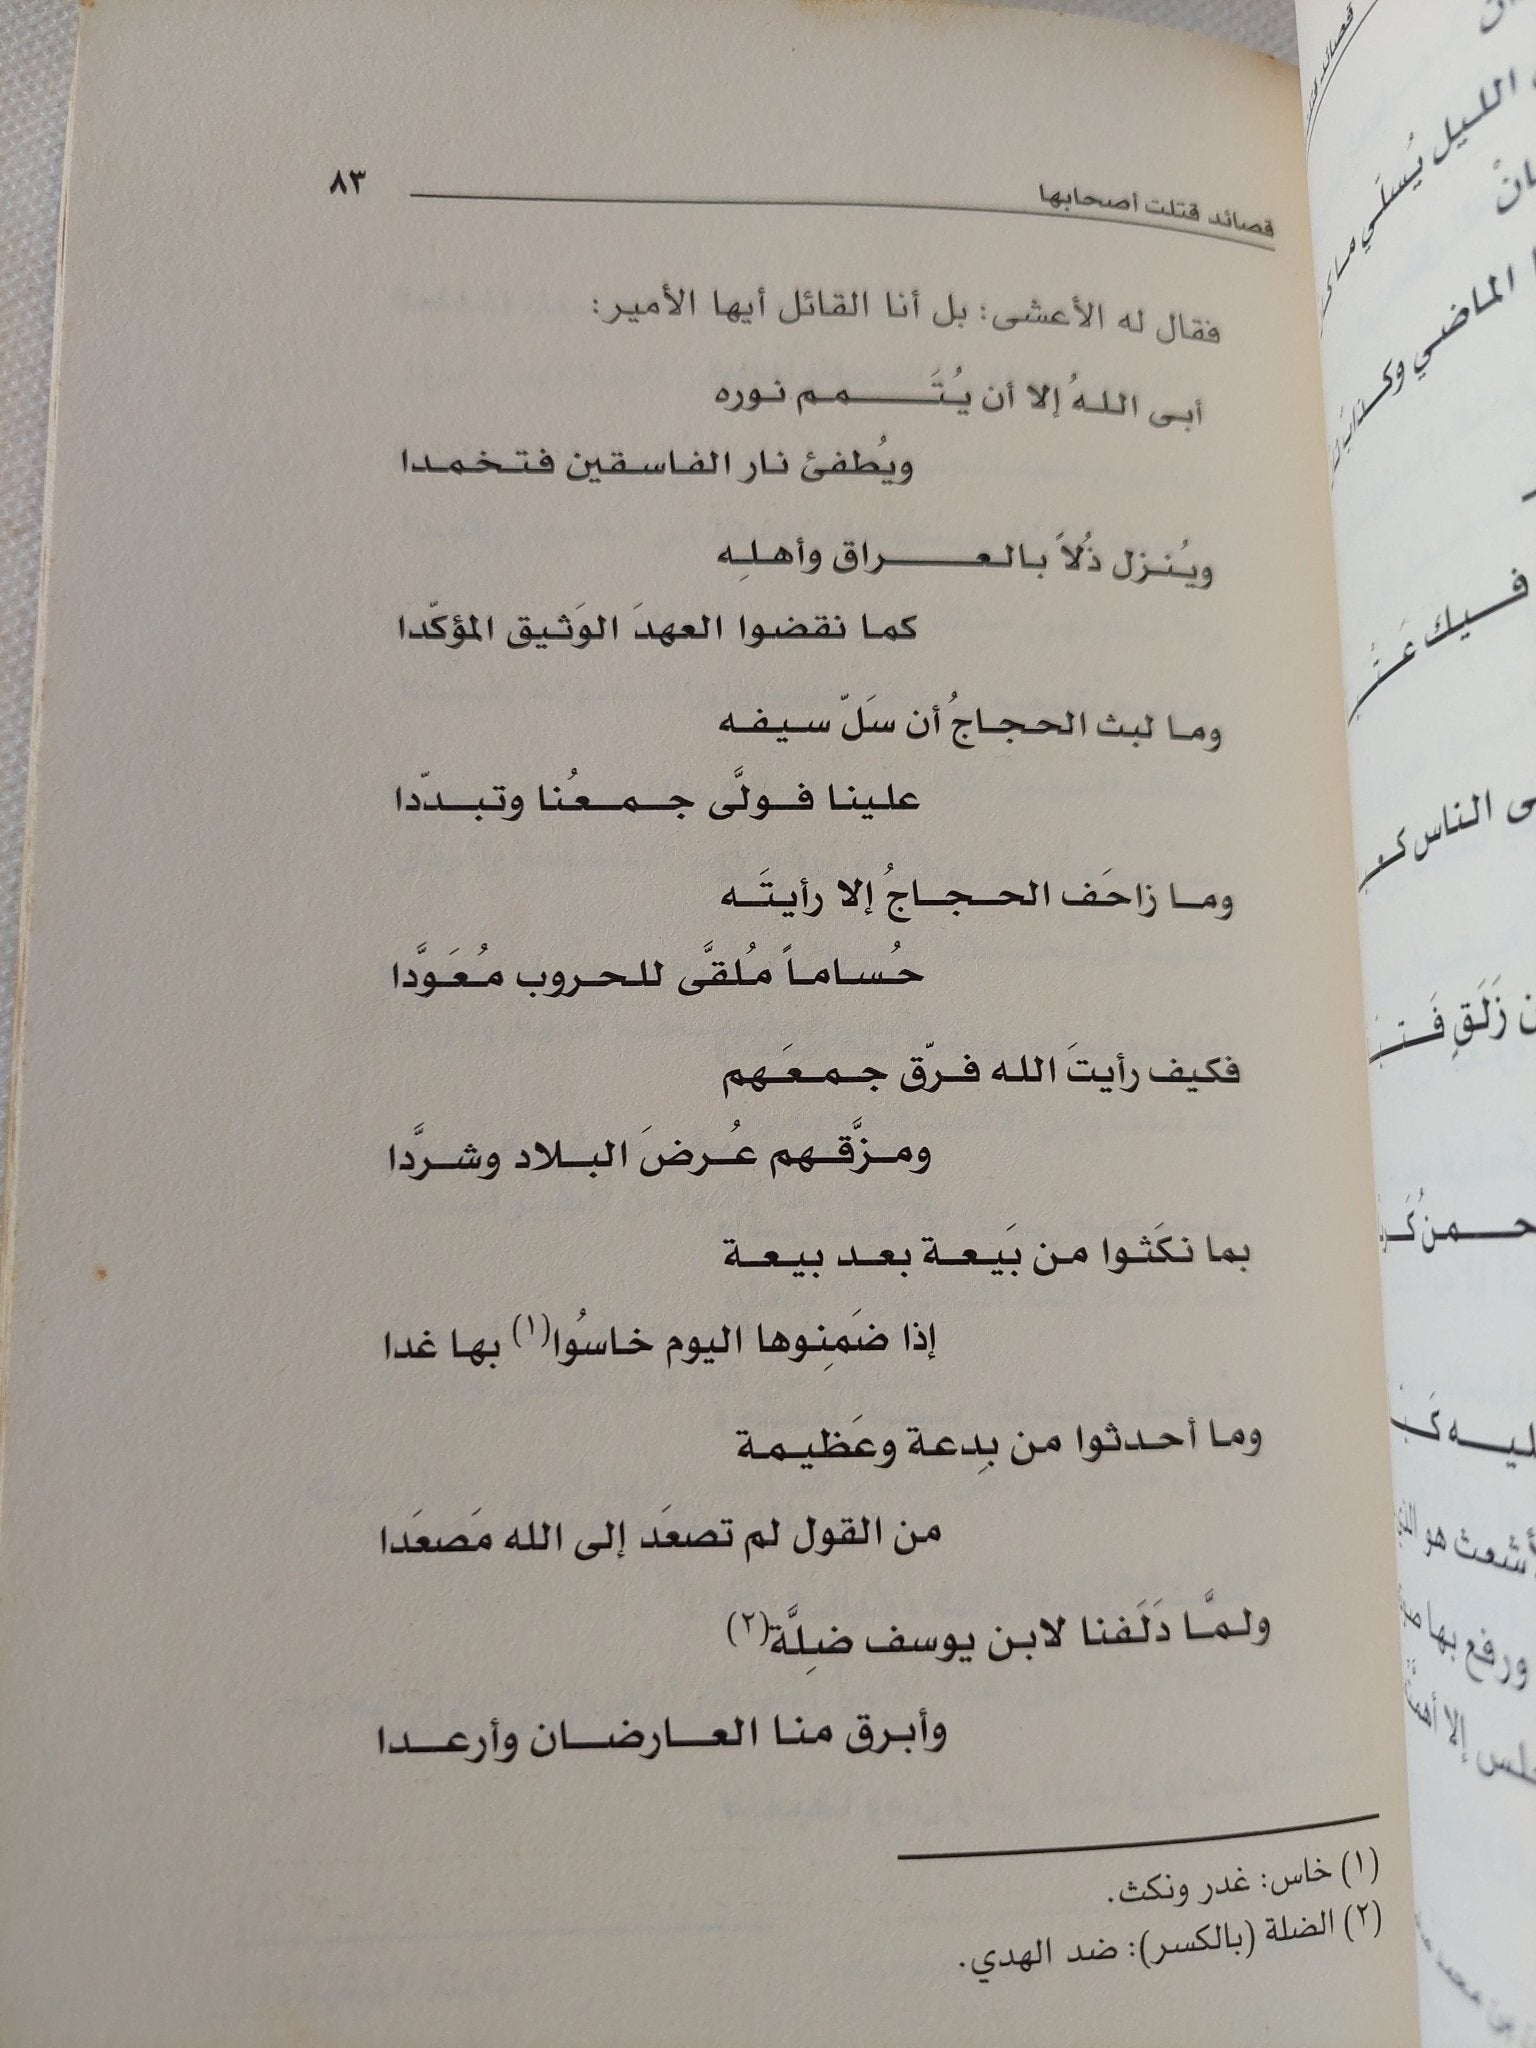 قصائد قتلت أصحابها ٨٣
فقال له الأعشى: بل أنا القائل أيها الأمير:
أبى اللهُ إلا أن يُتَمم نوره
ويُطفئ نار الفاسقين فتخمدا
ويُنزل ذُلاً بالعراق وأهلِه
كما نقضوا العهدَ الوَثيق المؤكّدا
وما لبث الحجاجُ أن سَلّ سيفه
علينا فولَّى جمعُنا وتبدّدا
وما زاحَف الحجاجُ إلا رأيتَه
حُساماً مُلقَّى للحروب مُعَوَّدا
فكيف رأيتَ الله فرّق جمعَهم
ومزَّقهم عُرضَ البلاد وشرَّدا
بما نكَثوا من بَيعة بعد بيعة
إذا ضَمِنوها اليوم خاسُوا(١) بها غدا
وما أحدثوا من بِدعة وعَظيمة
من القول لم تصعَد إلى الله مَصعَدا
ولمَّا دَلَفنا لابن يوسف ضِلَّة(٢)
وأبرق منا العارضان وأرعدا
(١) خاس: غدر ونكث.
(٢) الضلة (بالكسر): ضد الهدي.
الليل يُسلَي ما
الماضي
فيك
الناس
زَلَقٍ
ورفع بها
إلا